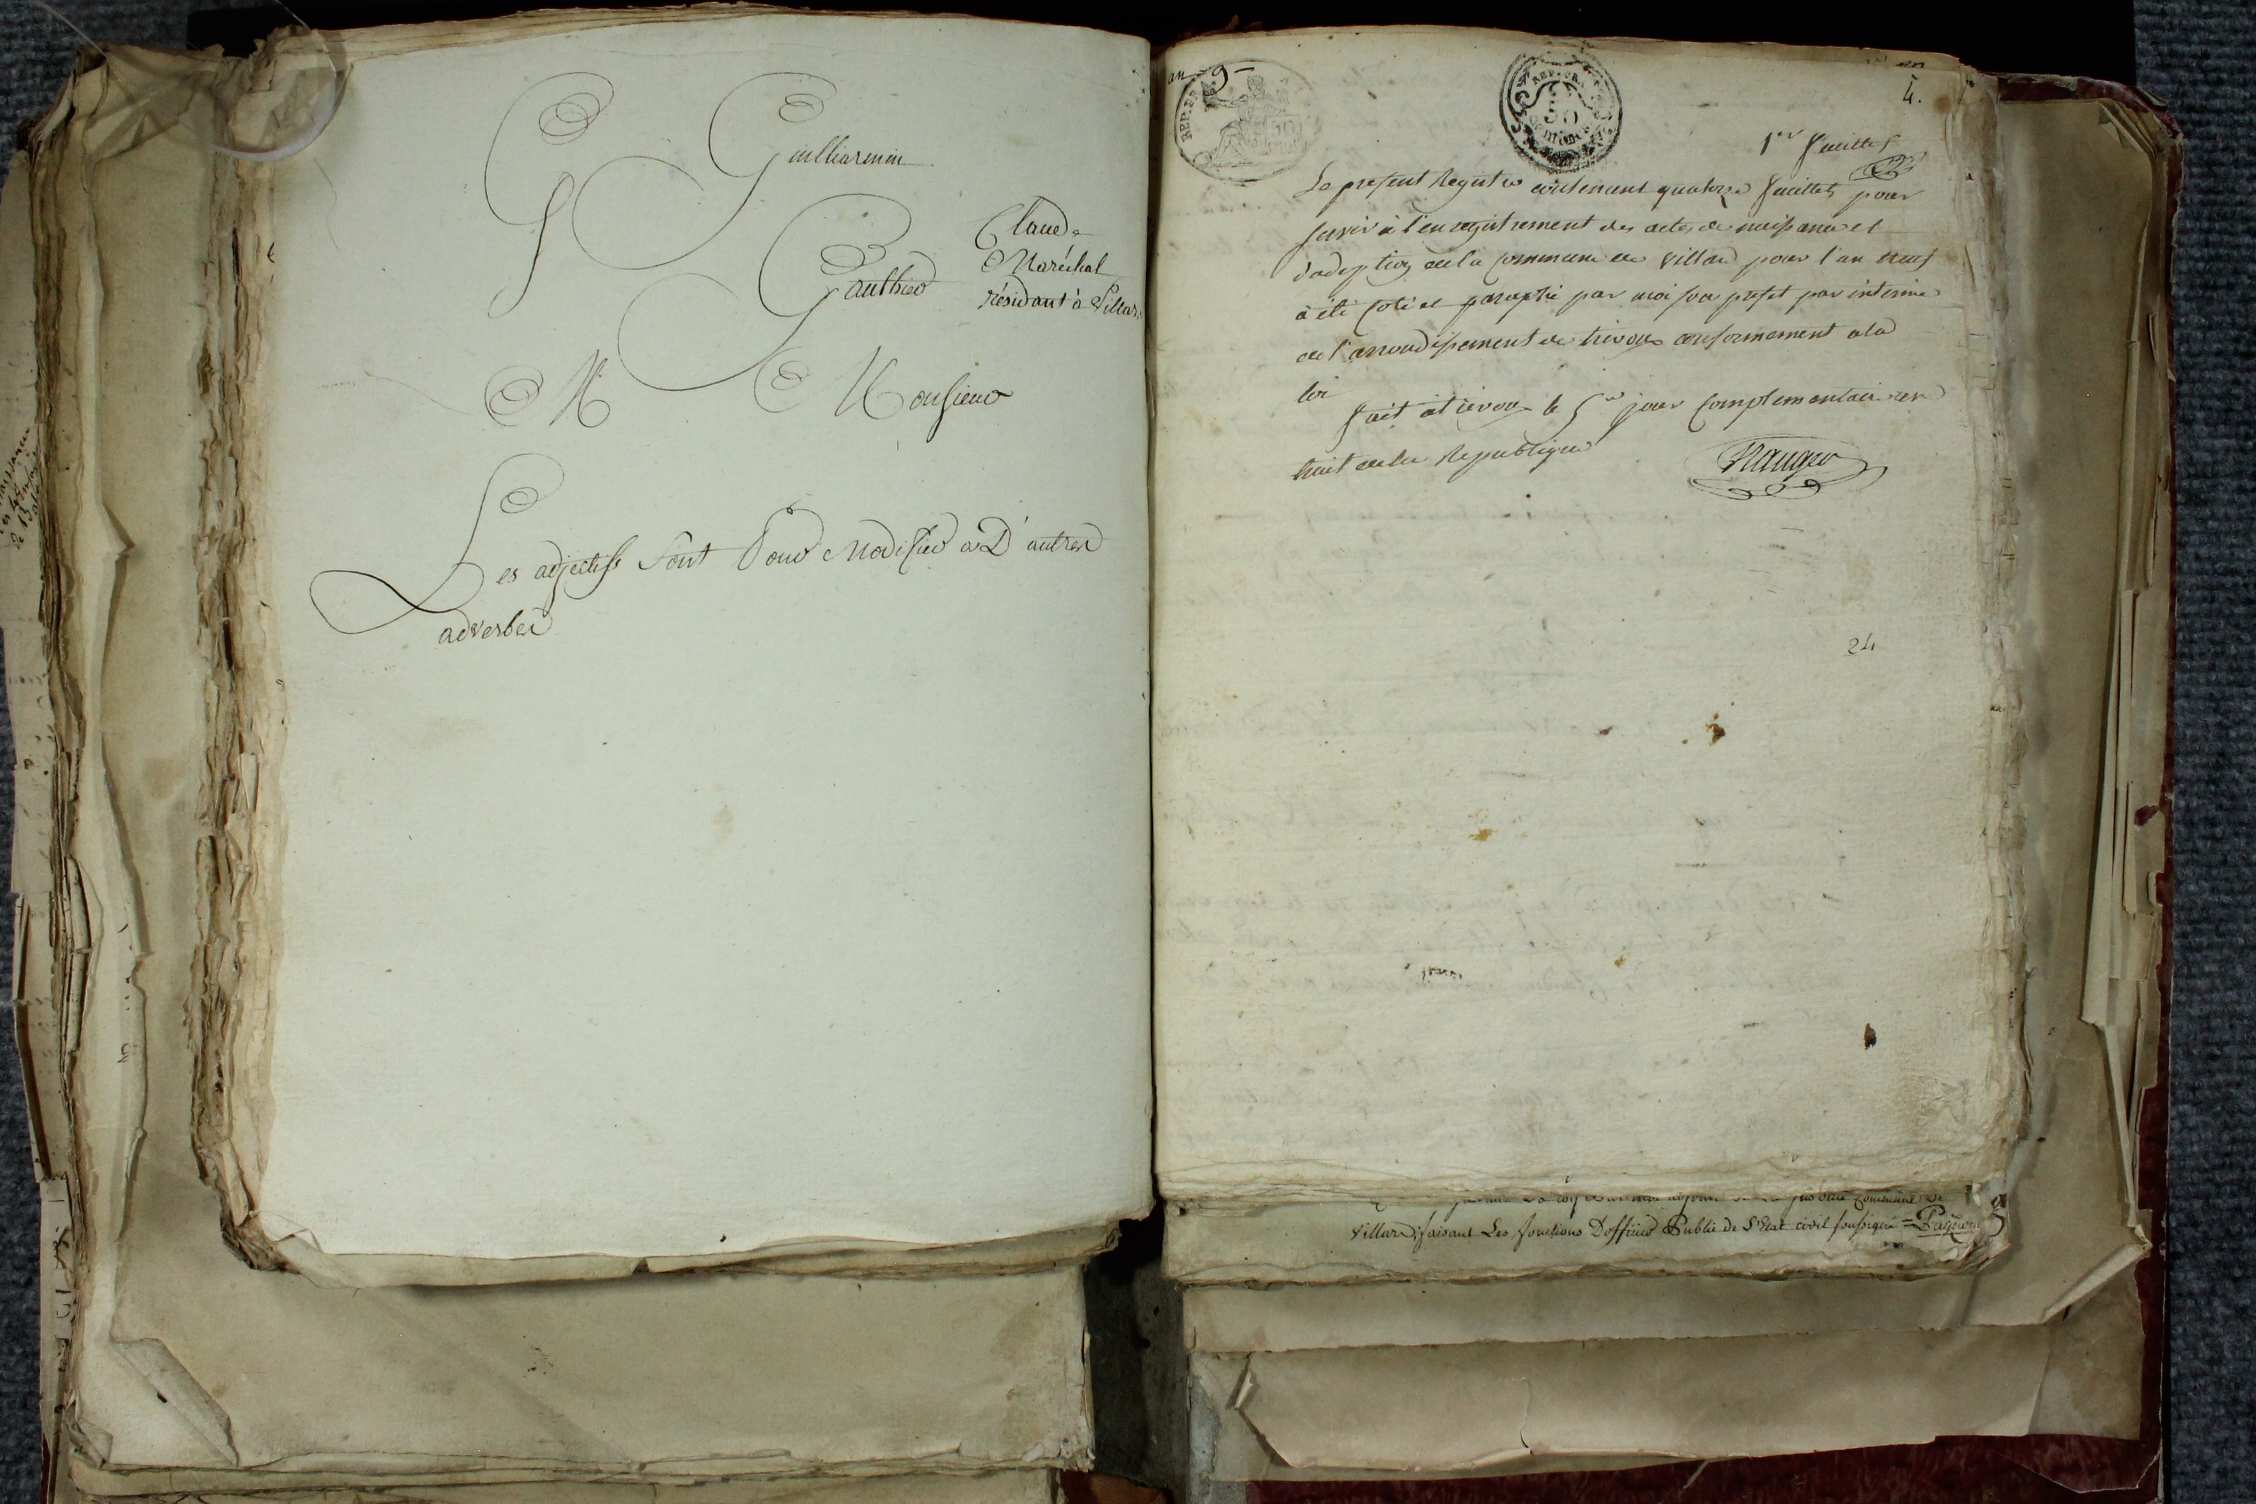 G Guilliarmin
Claude
Gauthier Maréchal
résidant à Villars
M Monsieur
Les adjectifs sont Pour Modifier D'autres
adverbes
an 9
REP. FR.
50
4.
1er feuillet
Le present Registre contenant quatorze feuillets pour
servir à l'enregistrement des actes de naissance et
d'adoption de la commune de villard pour l'an neuf
à été coté et paraphé par moi sou prefet par interim
de l'arrondissement de trevoux conformement a la
loi
fait à trevoux le 5e jour complementaire an
huit de la Republique
24
commune de
Villard faisant Les fonctions D'officier Public de l'Etat civil soussigné =